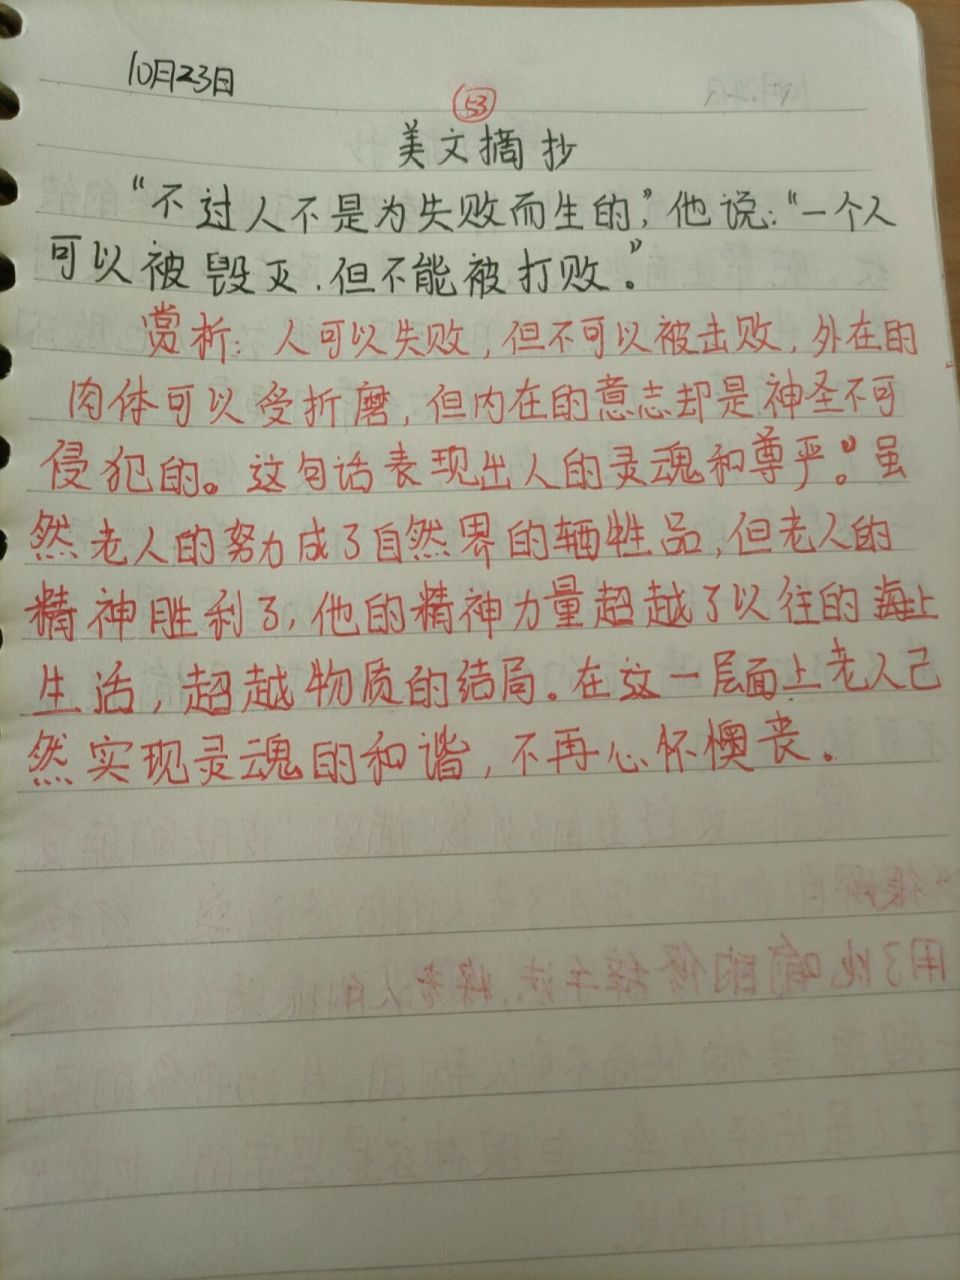 10月23日
53
美文摘抄
“不过人不是为失败而生的,”他说:“一个人
可以被毁灭.但不能被打败。”
赏析:人可以失败,但不可以被击败,外在的
肉体可以受折磨,但内在的意志却是神圣不可
侵犯的。这句话表现出人的灵魂和尊严”。虽
然老人的努力成了自然界的牺牲品,但老人的
精神胜利了,他的精神力量超越了以往的海上
生活,超越物质的结局。在这一层面上老人己
然实现灵魂的和谐,不再心怀懊丧。